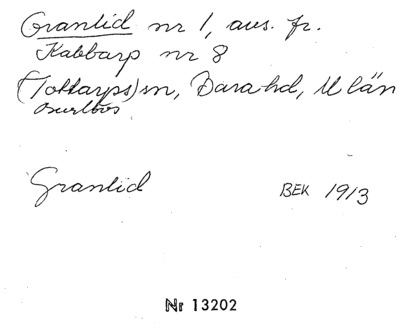 Granlid nr 1, avs. fr.
Kabbarp nr 8
(Tottarps) sn, Bara hd, M län
Burlövs
Granlid BEK 1913
Nr 13202